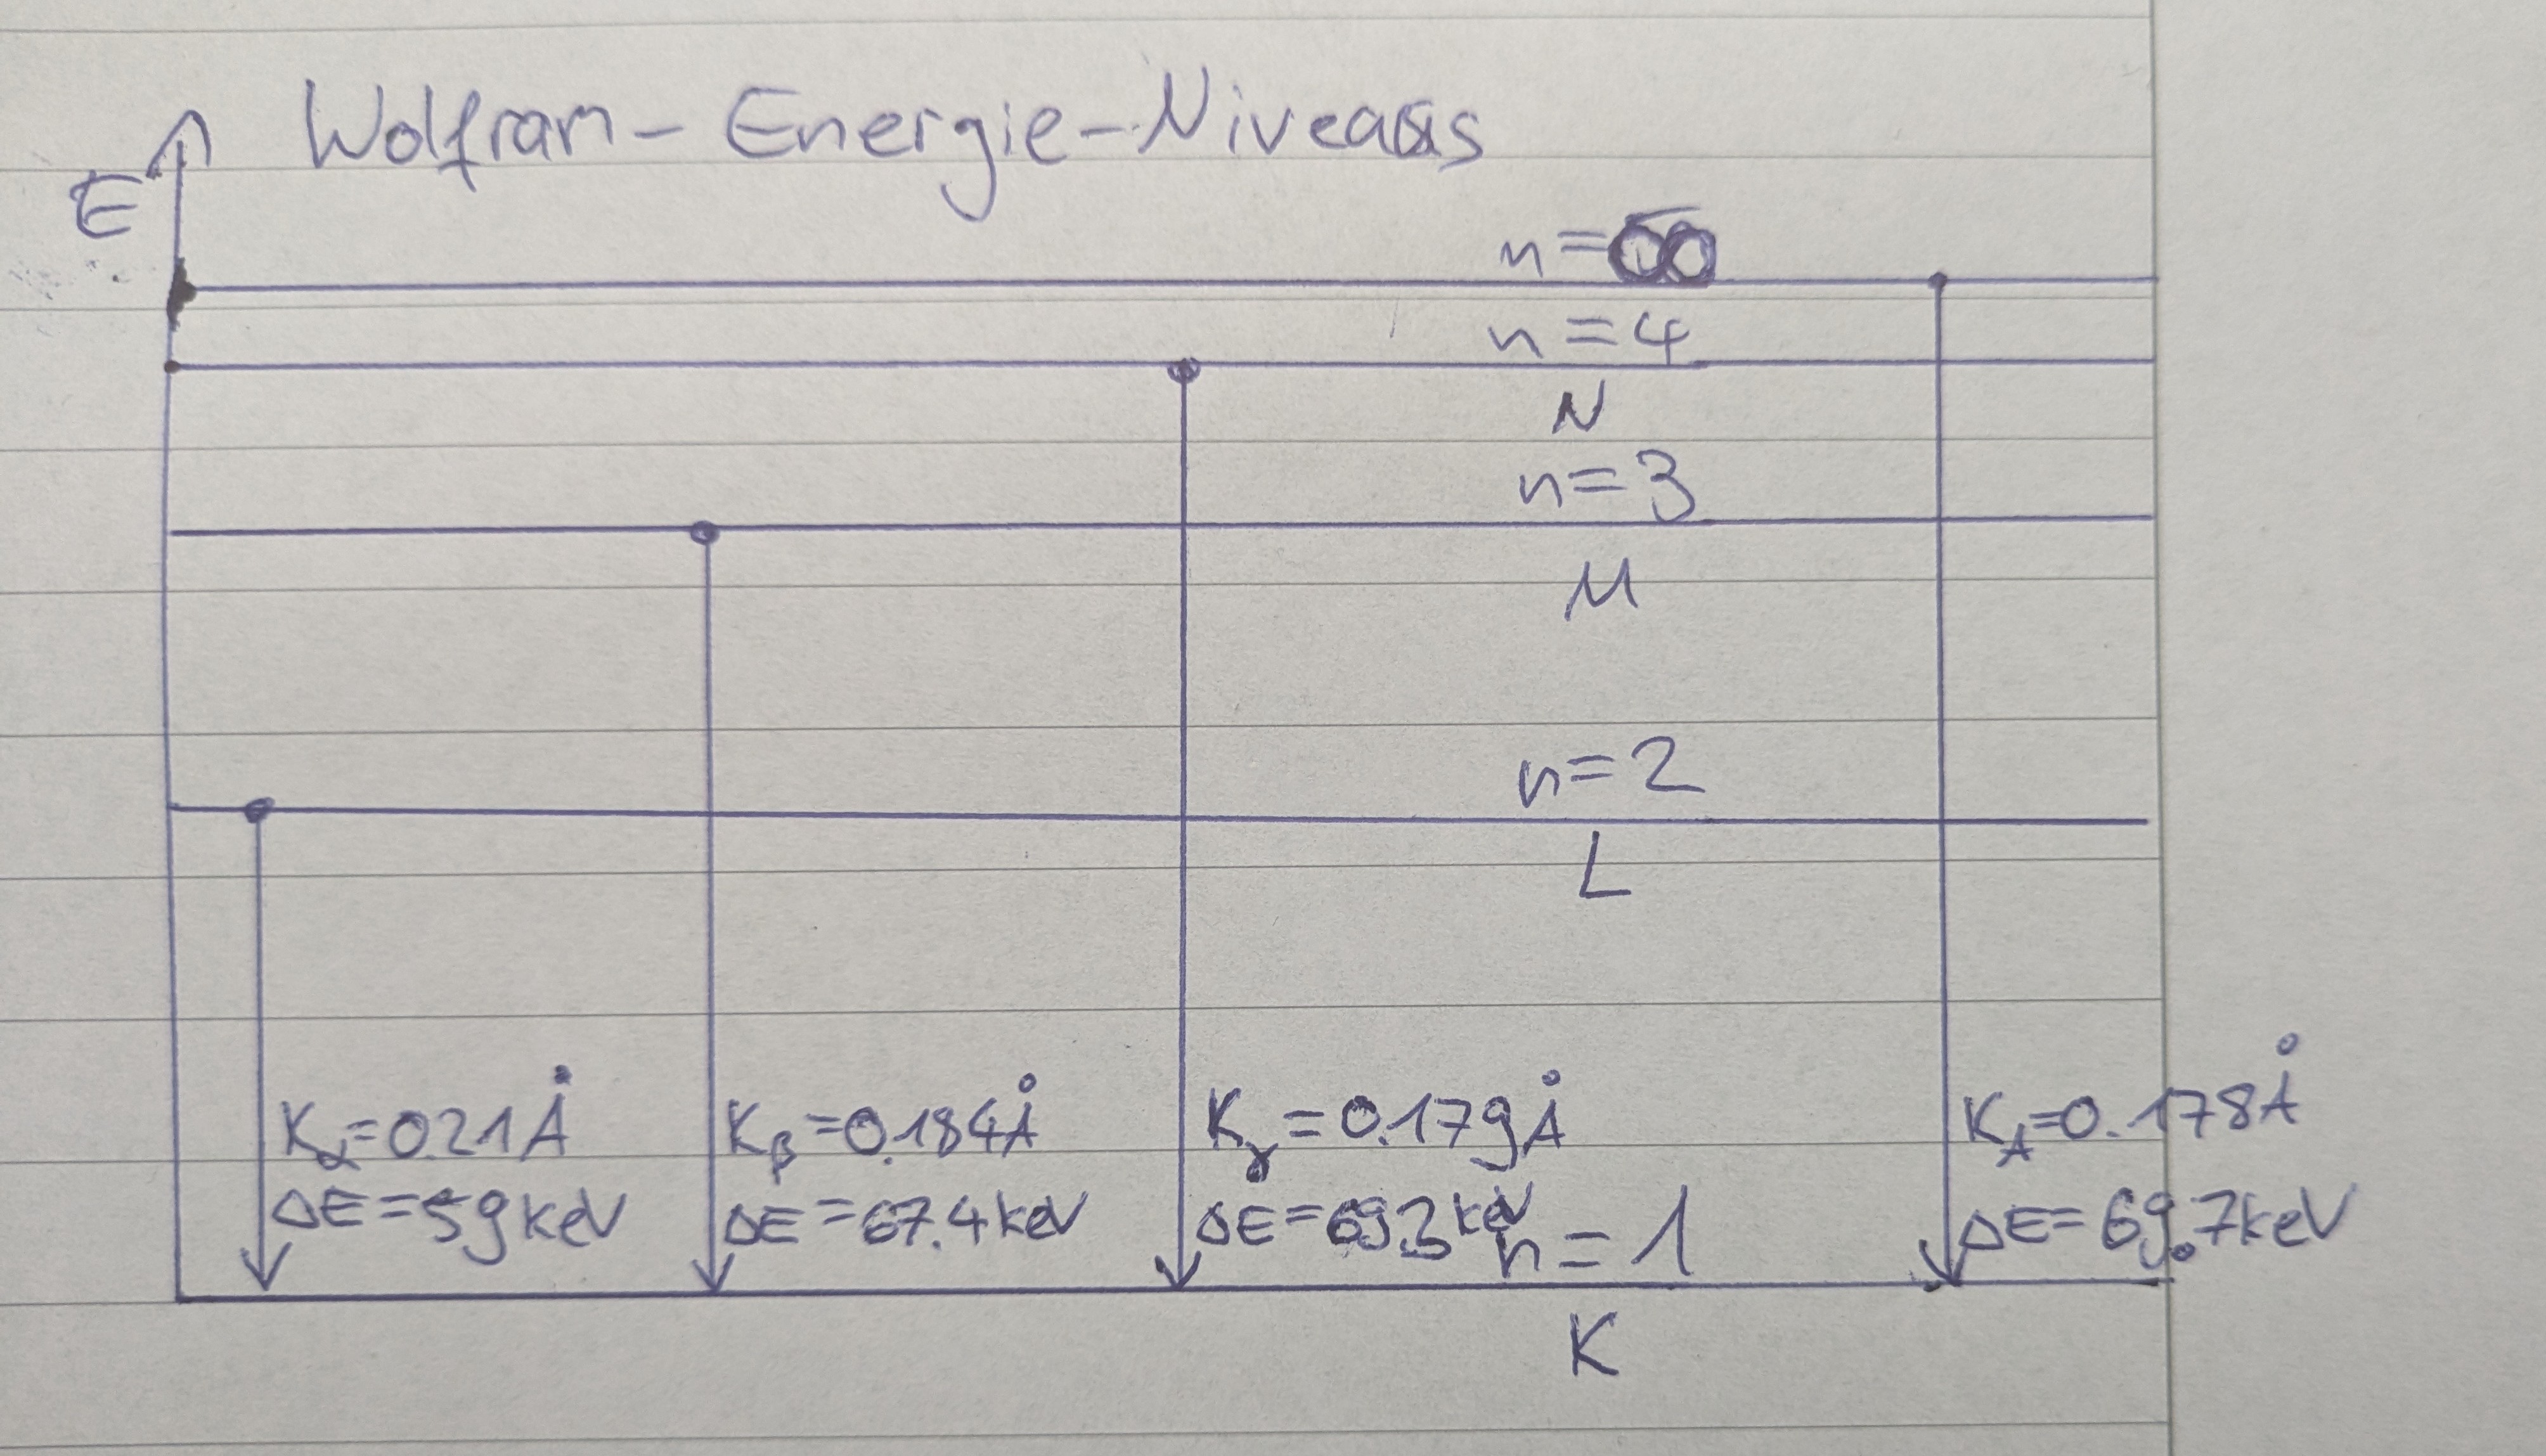 Wolfram-Energie-Niveaus
E
n=∞
n=4
N
n=3
M
n=2
L
Kα=0.21Å
ΔE=59keV
Kβ=0.184Å
ΔE=67.4keV
Kγ=0.179Å
ΔE=69.3keV
n=1
K_A=0.178Å
ΔE=69.7keV
K